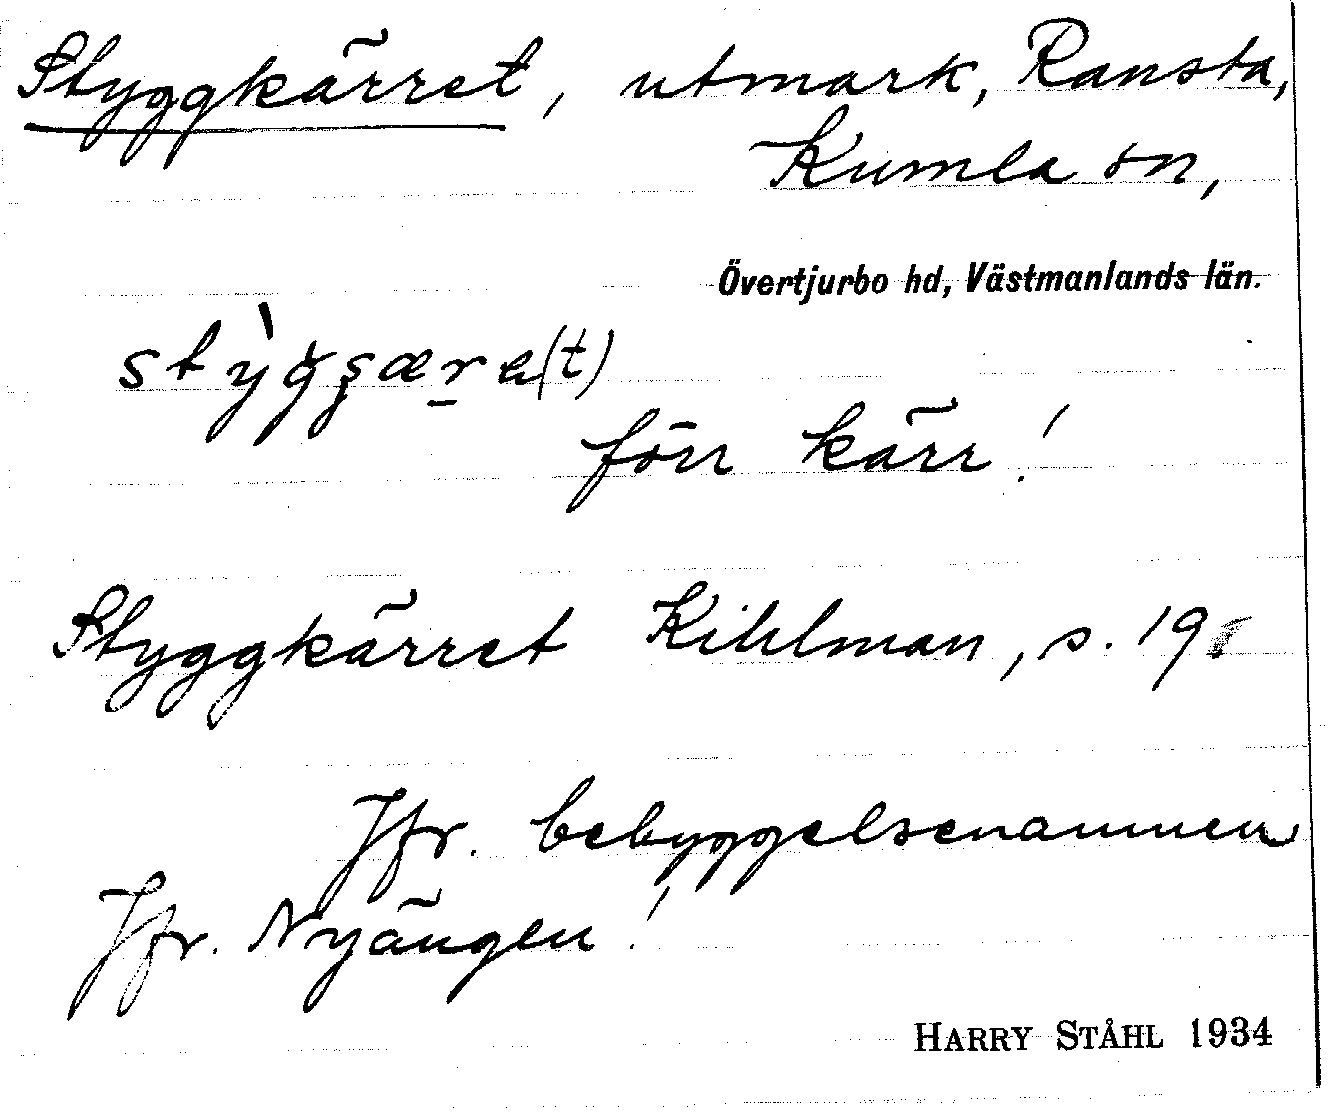 Styggkärret, utmark, Ransta,
Kumla sn,
Övertjurbo hd, Västmanlands län.
stỳgʂæra(t)
förr kärr!
Styggkärret Kihlman, s. 19
Jfr. bebyggelsenamnen
Jfr. Nyängen!
HARRY STÅHL 1934